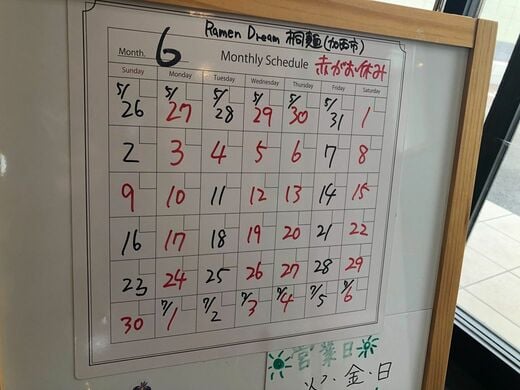 Ramen Dream 桐麺(加西市)
Month. 6 Monthly Schedule 赤がお休み
Sunday Monday Tuesday Wednesday Thursday Friday Saturday
5/26 5/27 5/28 5/29 5/30 5/31 1
2 3 4 5 6 7 8
9 10 11 12 13 14 15
16 17 18 19 20 21 22
23 24 25 26 27 28 29
30 7/1 7/2 7/3 7/4 7/5 7/6
営業日
火・金・日